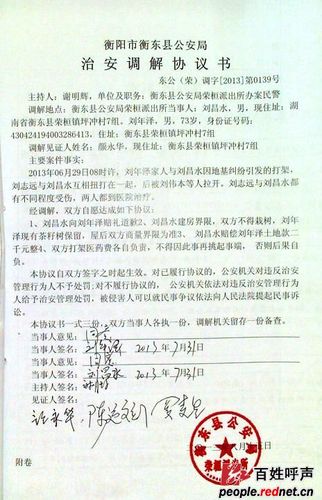 衡阳市衡东县公安局
治安调解协议书
东公（荣）调字[2013]第0139号
主持人：谢明辉，单位及职务：衡东县公安局荣桓派出所办案民警
调解地点：衡东县荣桓派出所当事人：刘昌水，男，现住址：湖
南省衡东县荣桓镇坪冲村7组、刘年泽，男，73岁，身份证号码：
430424194003286413，住址：衡东县荣桓镇坪冲村7组
调解见证人姓名：颜水华，住址：衡东县荣桓镇坪冲村7组
主要案件事实：
2013年06月29日08时许，刘年泽家人与刘昌水因地基纠纷引发的打架，
刘志远与刘昌水互相扭打在一起，后被刘伟本等人拉开。刘志远与刘昌水都
有不同程度受伤，两人都到医院治疗。
经调解，双方自愿达成如下协议：
1、刘昌水向刘年泽赔礼道歉2、刘昌水建房界限，双方不得栽树，刘年
泽现有茶籽树保留，屋后双方商量界限为准3、刘昌水赔偿刘年泽土地款二
千元整4、双方打架医药费各自负责，不得因此事再挑起事端，否则后果自
负。
本协议自双方签字之时起生效。对已履行协议的，公安机关对违反治安
管理行为人不予处罚；对不履行协议的，公安机关依法对违反治安管理行为人
给予治安管理处罚，被侵害人可以就民事争议依法向人民法院提起民事诉
讼。
本协议书一式三份，双方当事人各执一份，调解机关留存一份备查。
当事人意见：同意
当事人签名： 2013年7月31日
当事人意见：同意
当事人签名：刘昌水 2013年7月31日
主持人签名：
见证人签名：
衡东县公安局
荣桓派出所
附卷
百姓呼声
people.rednet.cn